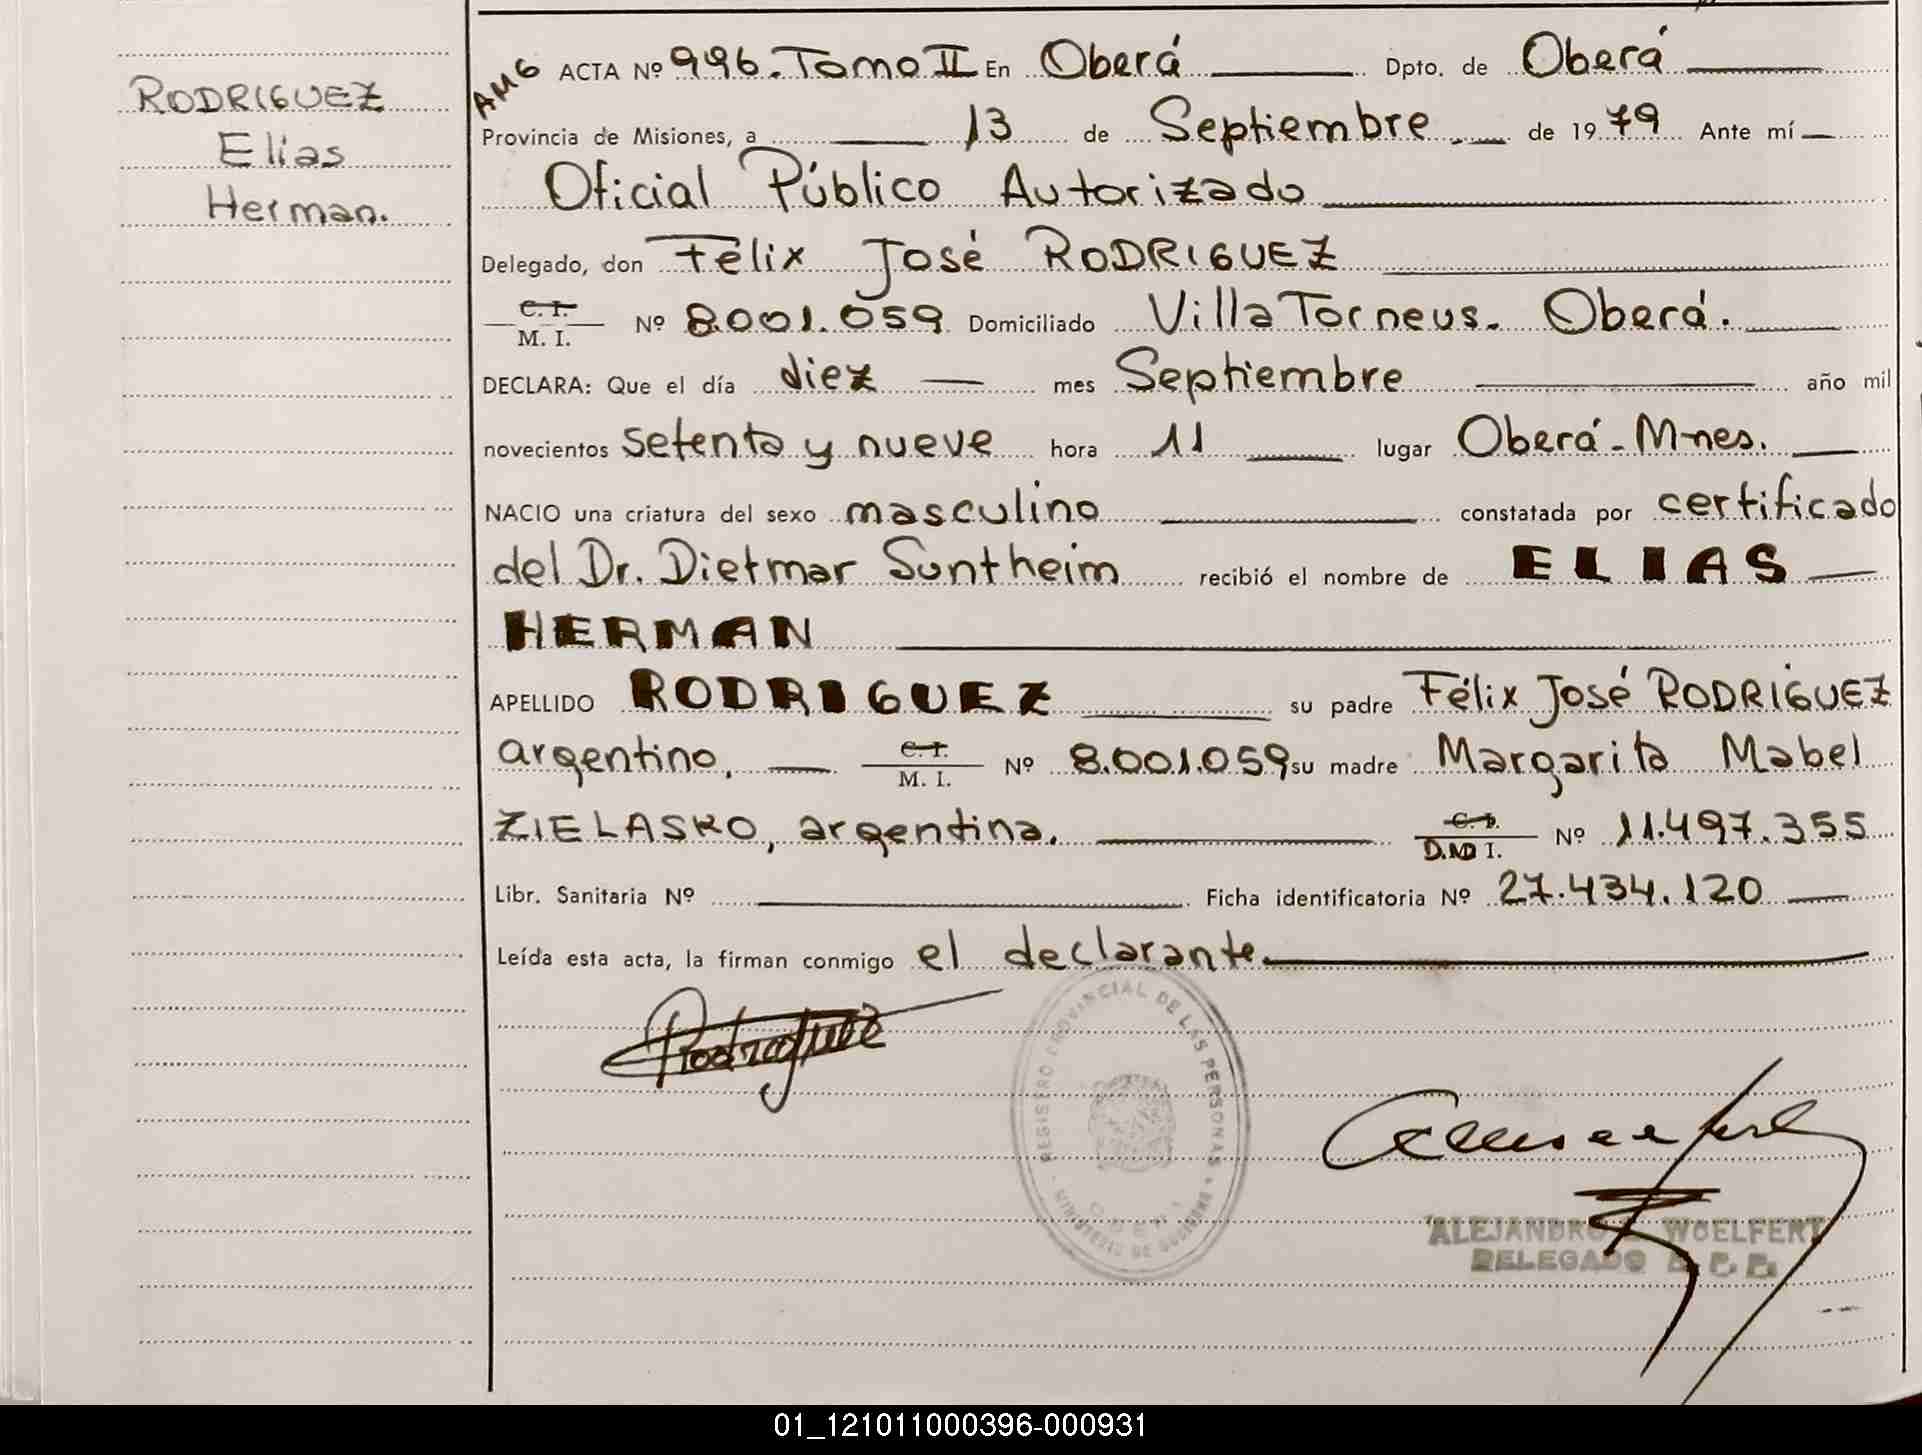 RODRIGUEZ
Elias
Herman.
AMG ACTA Nº 996. Tomo II En Oberá Dpto. de Oberá
Provincia de Misiones, a 13 de Septiembre de 1979 Ante mí
Oficial Público Autorizado
Delegado, don Félix José RODRIGUEZ
C. I.
M. I. Nº 8.001.059 Domiciliado Villa Torneus. Oberá.
DECLARA: Que el día diez mes Septiembre año mil
novecientos setenta y nueve hora 11 lugar Oberá - M-nes.
NACIO una criatura del sexo masculino constatada por certificado
del Dr. Dietmar Suntheim recibió el nombre de ELIAS
HERMAN
APELLIDO RODRIGUEZ su padre Félix José RODRIGUEZ
argentino, C. I. M. I. Nº 8.001.059 su madre Margarita Mabel
ZIELASKO, argentina. C. I. D.N I. Nº 11.497.355
Libr. Sanitaria Nº Ficha identificatoria Nº 27.434.120
Leída esta acta, la firman conmigo el declarante.
Rodriguez
REGISTRO PROVINCIAL DE LAS PERSONAS
MINISTERIO DE GOBIERNO
OBERA
ALEJANDRO WOELFERT
DELEGADO
01_121011000396-000931